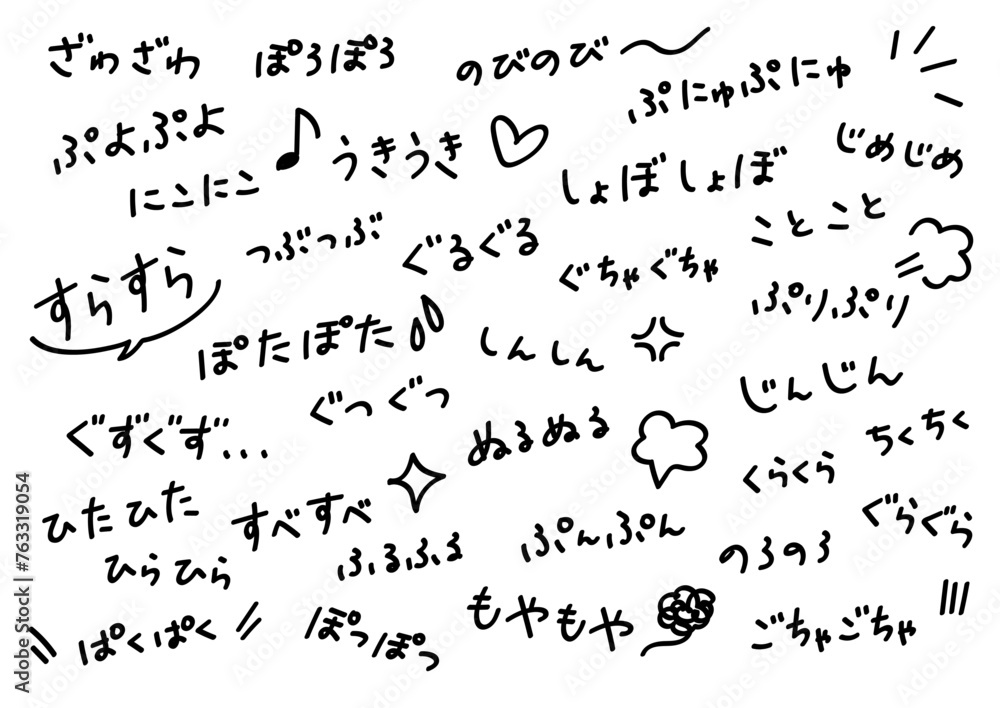 ざわざわ
ぽろぽろ
のびのび
ぷにゅぷにゅ
ぷよぷよ
うきうき
じめじめ
にこにこ
しょぼしょぼ
ことこと
つぶつぶ
ぐるぐる
ぐちゃぐちゃ
すらすら
ぷりぷり
ぽたぽた
しんしん
じんじん
ぐつぐつ
ぐずぐず...
ぬるぬる
ちくちく
くらくら
ひたひた
すべすべ
ぷんぷん
ぐらぐら
ひらひら
ふるふる
のろのろ
ぱくぱく
ぽっぽっ
もやもや
ごちゃごちゃ
Adobe Stock | #763319054